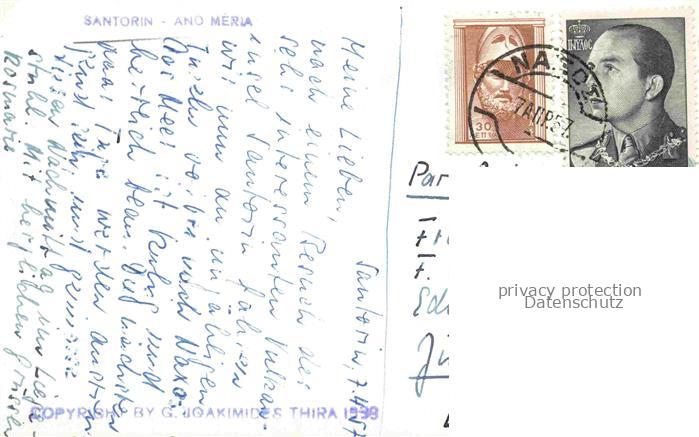 SANTORIN - ANO MÉRIA
Santorin, 7.4.57
Meine Lieben,
nach einem Besuch der
sehr interessanten Vulkan-
insel Santorin fahren
wir nun an unzähligen
Inseln vorbei nach Naxos.
Das Meer ist ruhig und
herrlich blau. Die nächsten
paar Tage werden
und
diesen Nachmittag im Liege-
stuhl. Mit herzlichen Grüssen
Rosmarie
COPYRIGHT BY G. JOAKIMIDES THIRA 1938
30
ΠΥΛΟΣ
7 ΑΠΡ 57
Par
privacy protection
Datenschutz